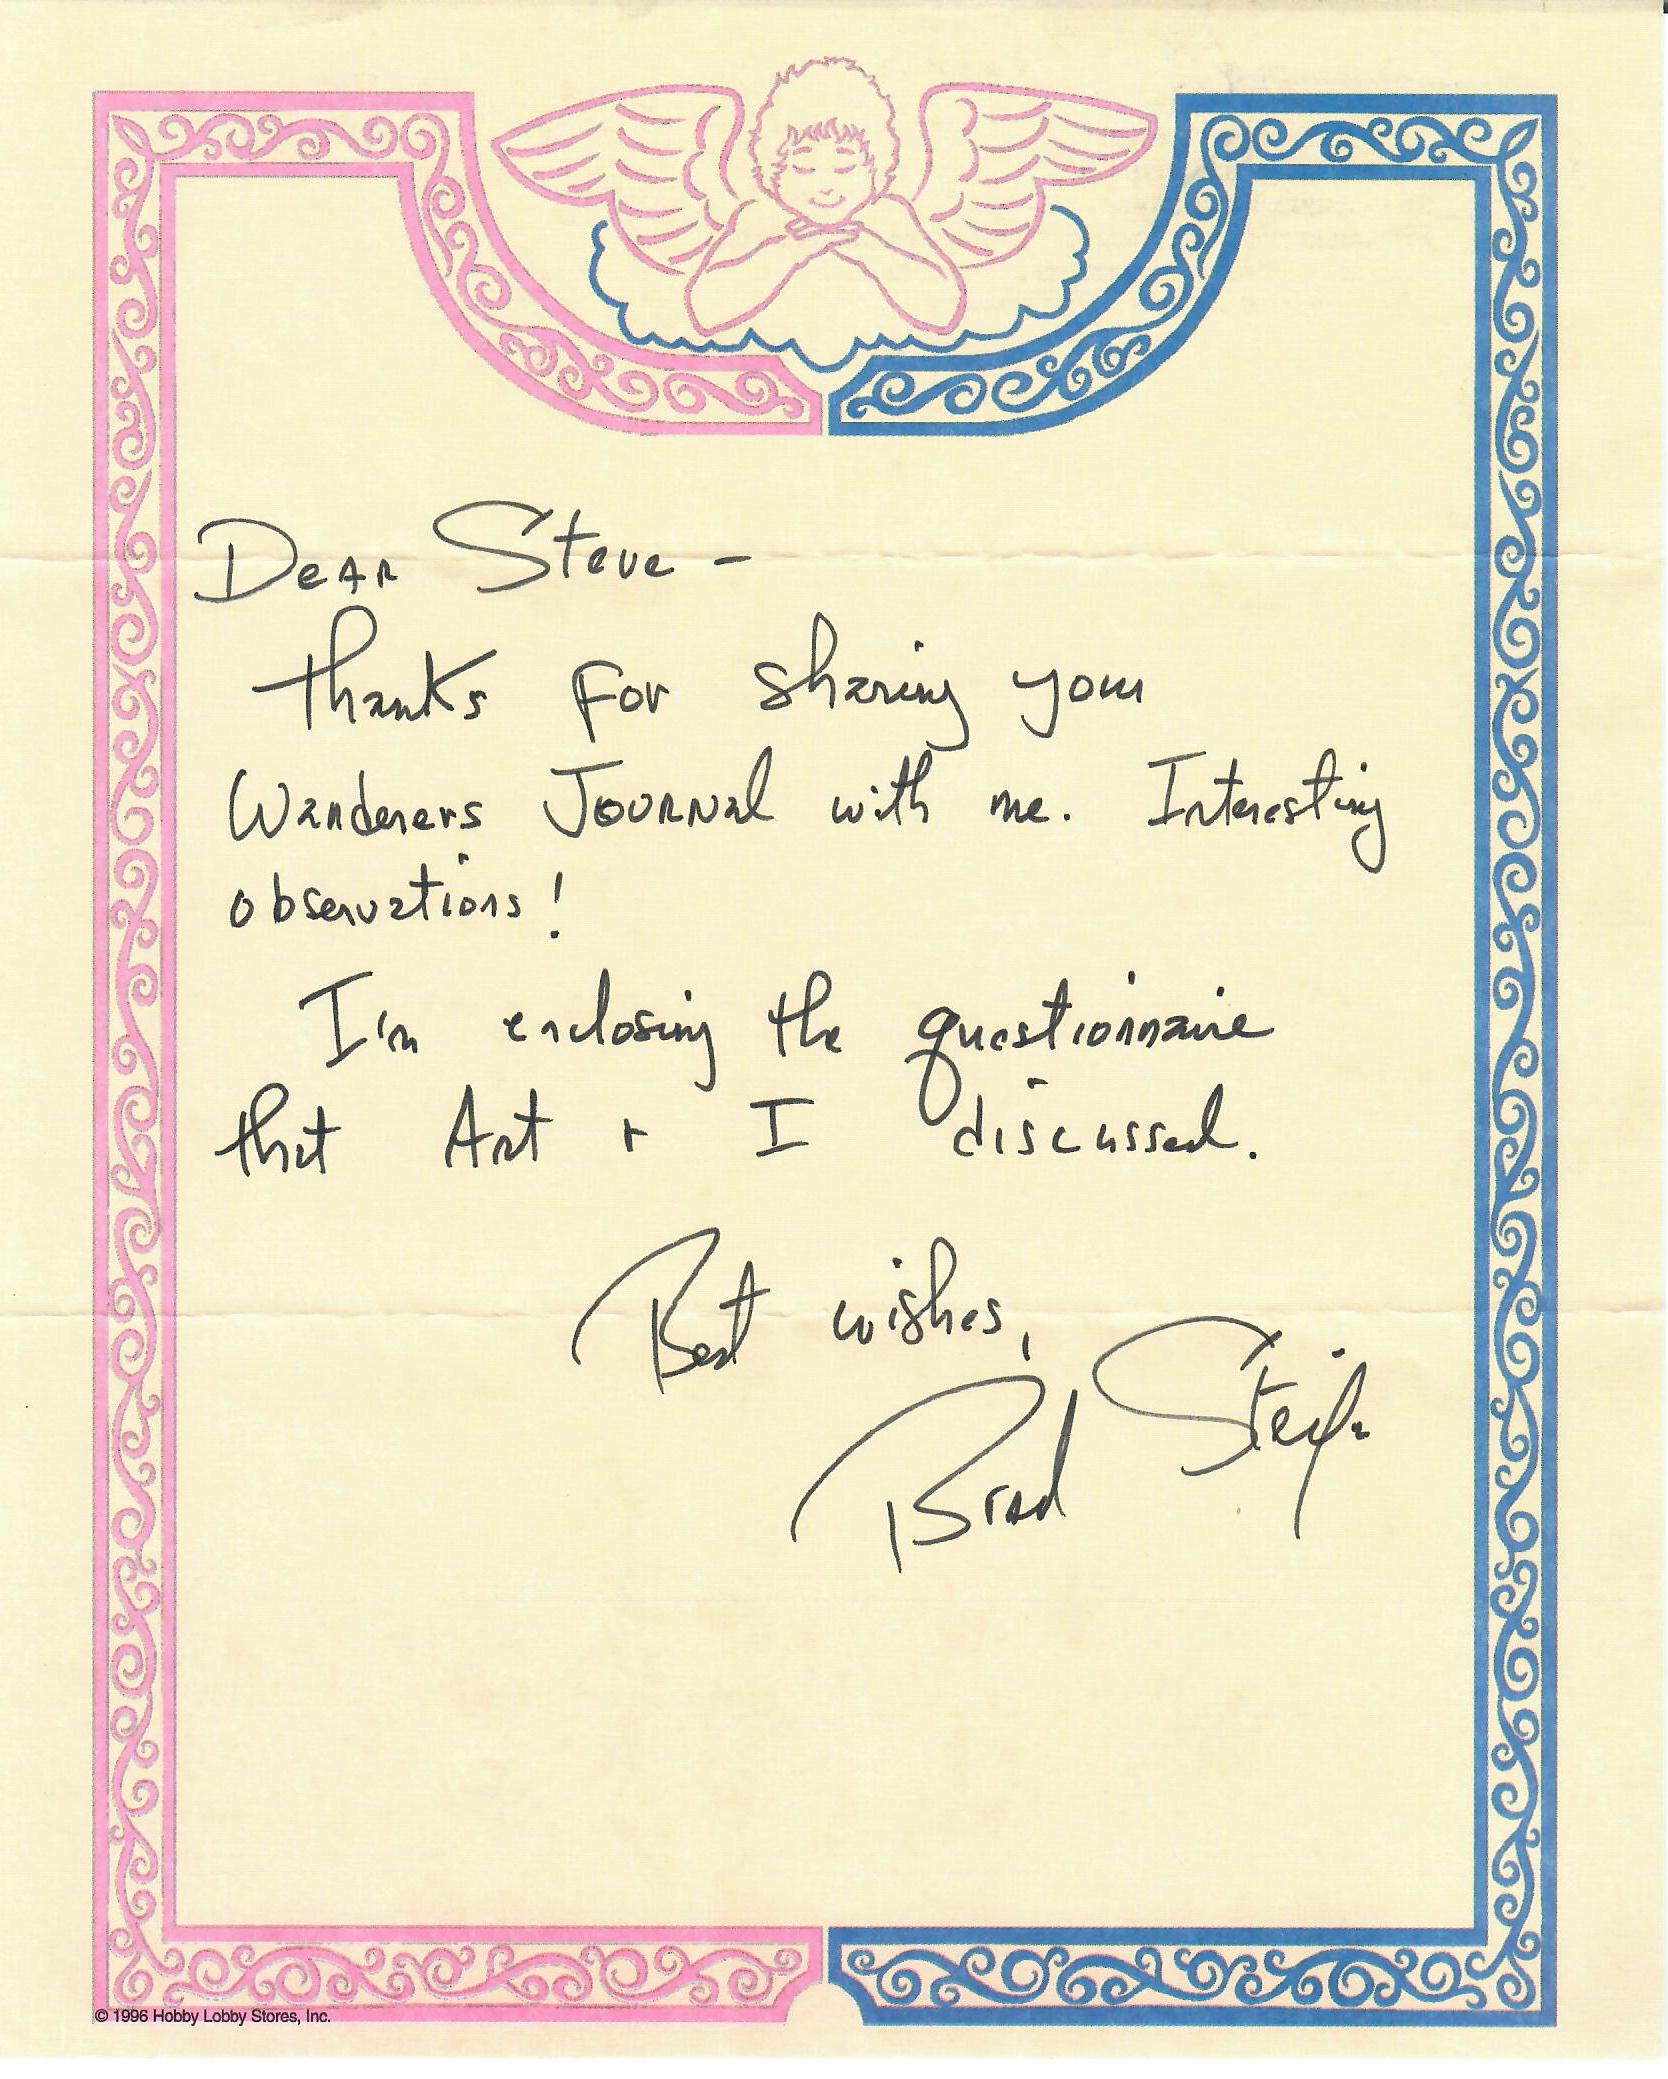 Dear Steve -
Thanks for sharing your
Wanderers Journal with me. Interesting
observations!
I'm enclosing the questionnaire
that Art + I discussed.
Best wishes,
Brad Steiger
© 1996 Hobby Lobby Stores, Inc.